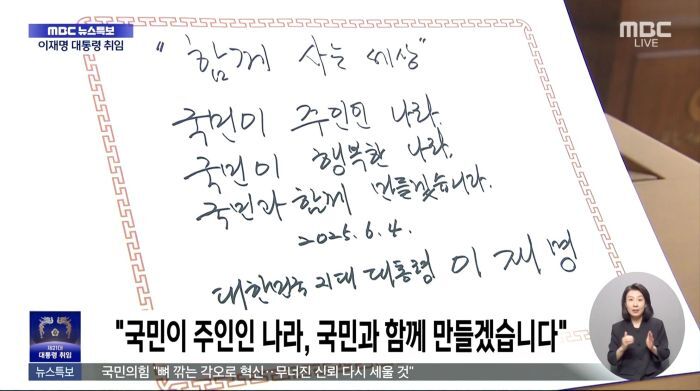 MBC 뉴스특보
이재명 대통령 취임
MBC
LIVE
"함께 사는 세상"
국민이 주인인 나라,
국민이 행복한 나라,
국민과 함께 만들겠습니다.
2025. 6. 4.
대한민국 21대 대통령 이재명
제21대
대통령 취임
"국민이 주인인 나라, 국민과 함께 만들겠습니다"
뉴스특보
국민의힘 "뼈 깎는 각오로 혁신‥무너진 신뢰 다시 세울 것"